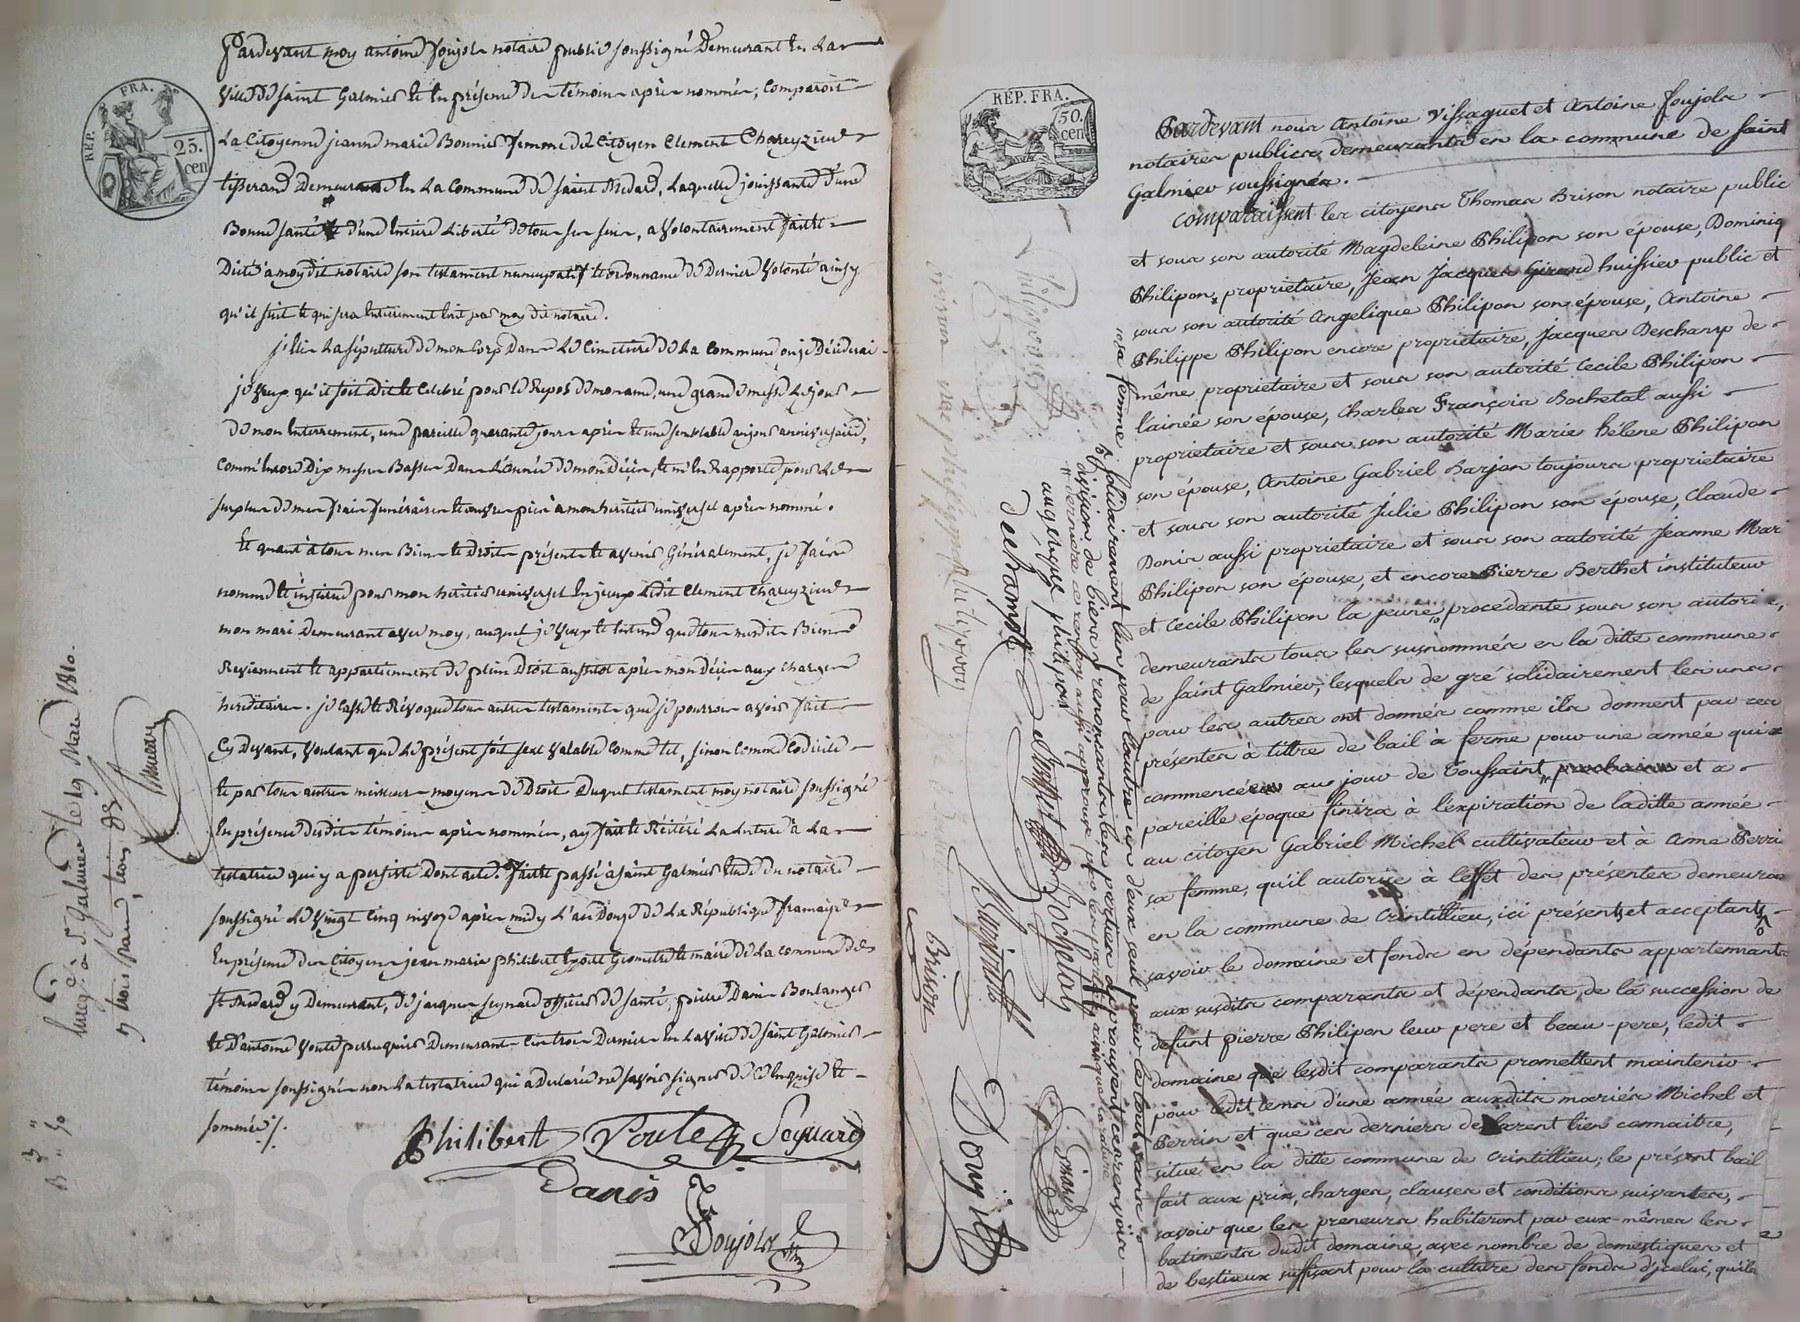 Pardevant moy antoine Foujols notaire public soussigné Demeurant En La
Ville De Saint Galmier Et En présence Des témoins après nommés, Comparoit
La Citoyenne jeanne marie Bonnier femme du Citoyen Clement Chareyzieu
tisserand Demeurant En La Commune De Saint Médard, Laquelle jouissante d'une
Bonne santé et d'une Entiere Liberté De tous ses sens, a Volontairement fait et
Dicté a moy dit notaire son testament nuncupatif et ordonnance De Derniere Volonté ainsy
qu'il suit et qui sera Entierement Ecrit par moy dit notaire.
j'Elis La sépulture De mon Corps Dans Le Cimetiere De La Commune ou je Décéderai
je Veux qu'il soit Dit et Celebré pour Le Repos De mon ame, une grande messe Le jour
De mon Enterrement, une pareille quarante jours après Et une semblable au jour anniversaire,
Comme Encore Dix messes Basses Dans L'année De mon Décès, et m'En Rapporte pour Le
surplus De mes frais funéraires et œuvres pies à mon heritier universel après nommé.
Et quant à tous mes Biens et Droits présents et avenir Généralement, je fais
nomme et institue pour mon heritier universel En jceux Ledit Clement Chareyzieu
mon mari Demeurant avec moy, auquel je Veux et Entend que tous mesdits Biens
Reviennent et appartiennent De plein Droit aussitot après mon Décès aux charges
hereditaires. je Casse et Révoque tous autres testaments que je pourrois avoir fait
Cy Devant, Voulant que Le présent soit seul Valable Comme tel, sinon Comme Codicile
et par tous autres meilleurs moyens De Droit Duquel testament moy notaire soussigné
En présence desdits témoins après nommés, ay fait et Réitéré La Lecture à La
testatrice qui y a persisté Dont acte. fait et passé à Saint Galmier Etude Du notaire
soussigné Le Vingt Cinq nivose après midy L'an Douze De La République française
En présence Des Citoyens jean marie philibert Geometre et maire De La Commune De
St Medard y Demeurant, De jacques seynard officier De santé, pierre Danis Boulanger
et D'antoine Voute perruquier Demeurants Ces trois Derniers En La Ville De Saint Galmier
témoins soussignés non La testatrice qui a Declaré ne savoir signer De Ce Enquise et
sommée ./.
Philibert Voute Seynard
Danis
Foujols
RÉP. FRA.
25. cen
St Galmier le 19 Mars 1810.
trois francs
RÉP. FRA.
50. cen
Pardevant nous Antoine Vissaguet et Antoine Foujols
notaires publics demeurants en la commune de Saint
Galmier soussignés.
Comparaissent les citoyens Thomas Brison notaire public
et sous son autorité Magdeleine Philipon son épouse, Dominiq
Philipon, proprietaire, Jean Jacques Girard huissier public et
sous son autorité Angelique Philipon son épouse, Antoine
Philippe Philipon encore proprietaire, Jacques Deschamps de
même proprietaire et sous son autorité Cecile Philipon
l'ainée son épouse, Charles François Rochetal aussi
proprietaire et sous son autorité Marie hélene Philipon
son épouse, Antoine Gabriel Barjon toujours proprietaire
et sous son autorité Julie Philipon son épouse, Claude
Donis aussi proprietaire et sous son autorité Jeanne Mari
Philipon son épouse, et encore Pierre Berthet instituteur
et Cecile Philipon la jeune procédante sous son autorité,
demeurants tous les susnommés en la ditte commune
de Saint Galmier, lesquels de gré solidairement les uns
pour les autres ont donnés comme ils donnent par ces
présentes à tittre de bail à ferme pour une année qui
commencée au jour de Toussaint prochain et a
pareille époque finira à l'expiration de laditte année
au citoyen Gabriel Michel cultivateur et à Anne Perri
sa femme, qu'il autorise à l'effet des présentes demeurant
en la commune de Crintillieu, ici présents et acceptants
savoir le domaine et fonds en dépendants appartennants
aux susdits comparants et dépendants de la succession de
defunt pierre Philipon leur pere et beau-pere, ledit
domaine que lesdit comparants promettent maintenir
pour ledit tems d'une année auxdits mariés Michel et
Perrin et que ces derniers declarent bien connaitre,
situé en la ditte commune de Crintillieu; le présent bail
fait aux prix, charges, clauses et conditions suivantes,
savoir que les preneurs habiteront par eux-mêmes les
batiments dudit domaine, avec nombre de domestiques et
de bestiaux suffisant pour la culture des fonds d'jcelui, qu'ils
sa femme
solidairement l'un pour l'autre un d'eux seul pour le tout sans
division de biens, renonçants
angelique philipon
dechamps
Rochetal
Brison
Girard